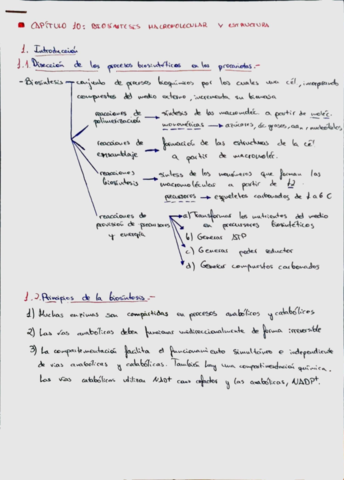 CAPÍTULO 10: BIOSÍNTESIS MACROMOLECULAR Y ESTRUCTURA
1. Introducción
1.1 Dirección de los procesos biosintéticos en los procariotas.-
- Biosíntesis → conjunto de procesos bioquímicos por los cuales una cél, incorporando
compuestos del medio externo, incrementa su biomasa
reacciones de polimerización → síntesis de las macromoléc a partir de moléc.
monoméricas → azúcares, ác. grasos, aa, nucleótidos
reacciones de ensamblaje → formación de las estructuras de la cél
a partir de macromoléc.
reacciones biosíntesis → síntesis de los monómeros que forman las
macromoléculas a partir de
precursores → esqueletos carbonados de 1 a 6 C
reacciones de provisión de precursores y energía
a) Transformar los nutrientes del medio
en precursores biosintéticos
b) Generar ATP
c) Generar poder reductor
d) Generar compuestos carbonados
1.2. Principios de la biosíntesis.-
1) Muchas enzimas son compartidas en procesos anabólicos y catabólicos
2) Las vías anabólicas deben funcionar unidireccionalmente de forma irreversible
3) La compartimentación facilita el funcionamiento simultáneo e independiente
de vías anabólicas y catabólicas. También hay una compartimentación química.
Las vías catabólicas utilizan NAD+ como cofactor y las anabólicas, NADP+.